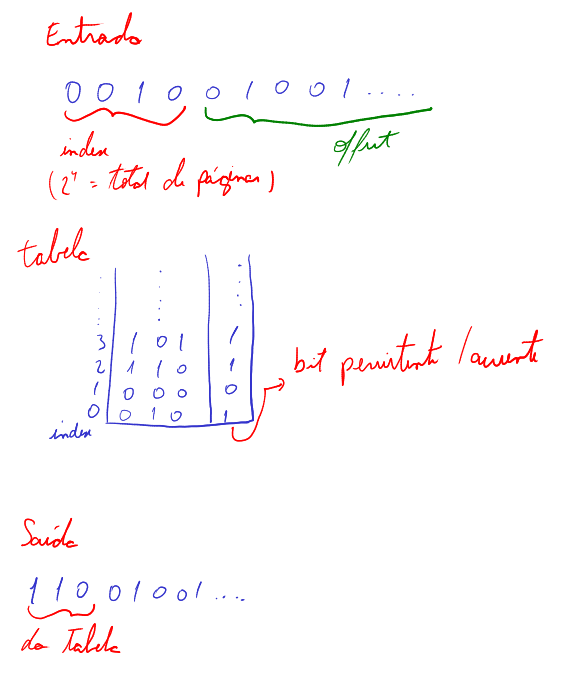 Entrada
0 0 1 0 0 1 0 0 1 ....
index
offset
(2⁴ = total de páginas)
tabela
3 1 0 1 1
2 1 1 0 1
1 0 0 0 0
0 0 1 0 1
index
bit persistente / ausente
Saída
1 1 0 0 1 0 0 1 ....
da Tabela